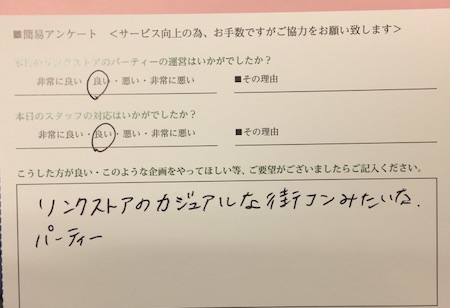 ■簡易アンケート <サービス向上の為、お手数ですがご協力をお願い致します>
本日のリンクストアのパーティーの運営はいかがでしたか?
非常に良い・良い・悪い・非常に悪い ■その理由
本日のスタッフの対応はいかがでしたか?
非常に良い・良い・悪い・非常に悪い ■その理由
こうした方が良い・このような企画をやってほしい等、ご要望がございましたらご記入ください。
リンクストアのカジュアルな街コンみたいな.
パーティー